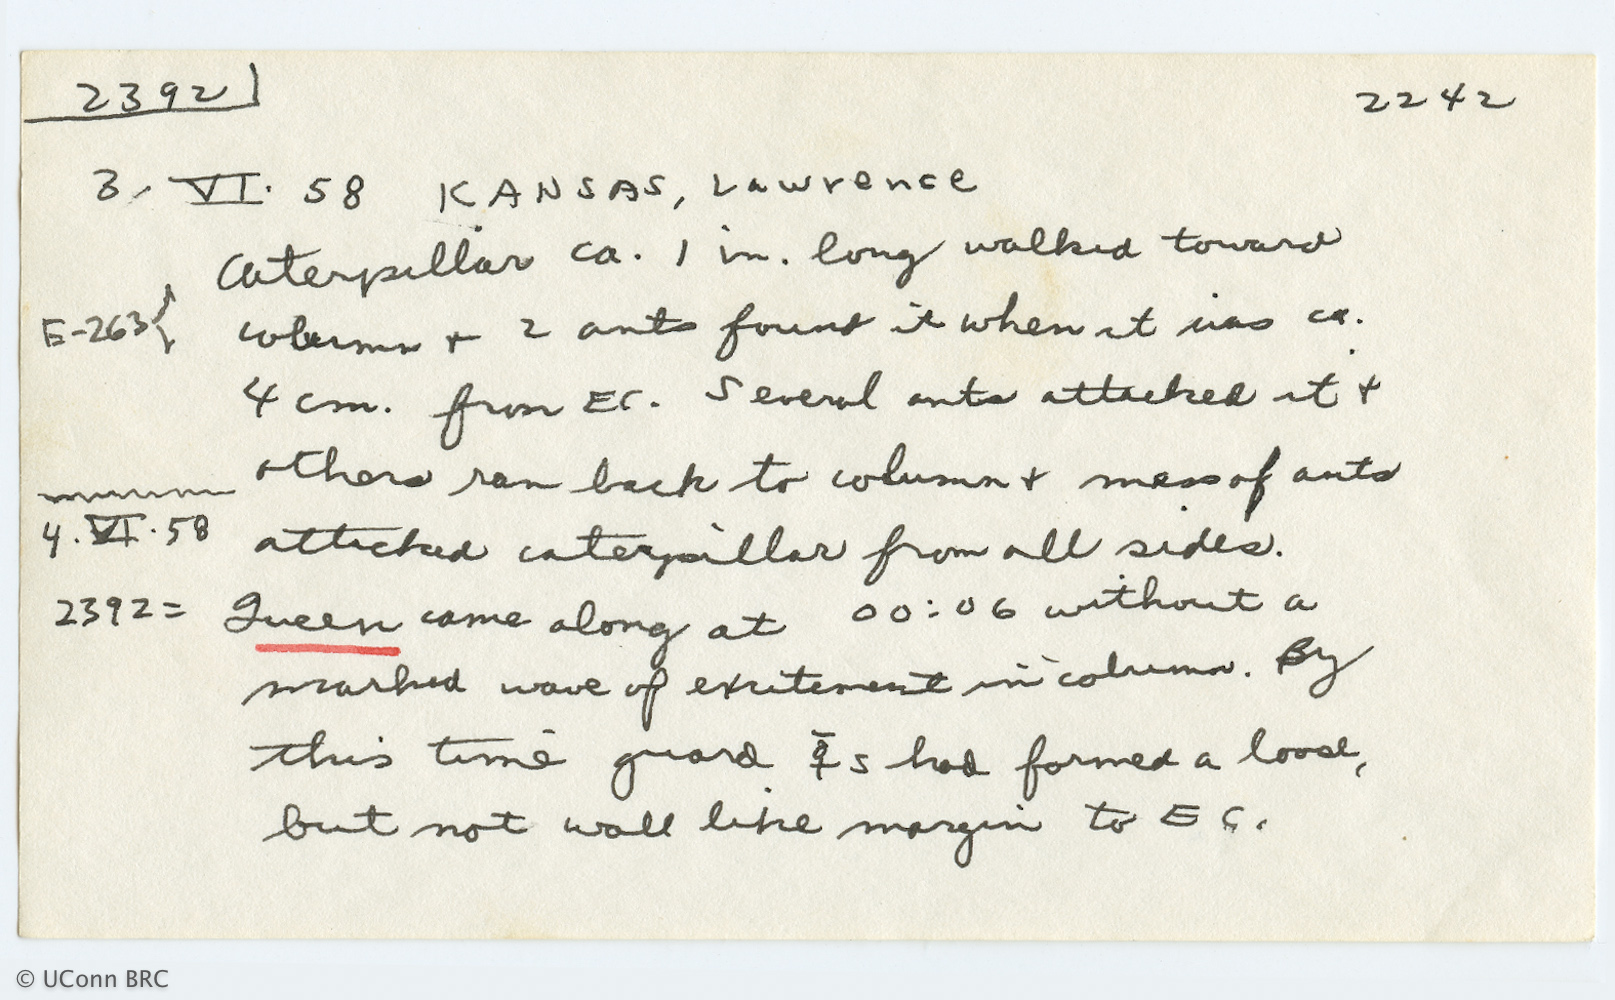 2392 2242
3. VI. 58 KANSAS, Lawrence
Caterpillar ca. 1 in. long walked toward
E-263} column + 2 ants found it when it was ca.
4 cm. from EC. Several ants attacked it +
others ran back to column + mass of ants
4. VI. 58 attacked caterpillar from all sides.
2392= Queen came along at 00:06 without a
marked wave of excitement in column. By
this time guard s had formed a loose,
but not wall like margin to EC.
© UConn BRC